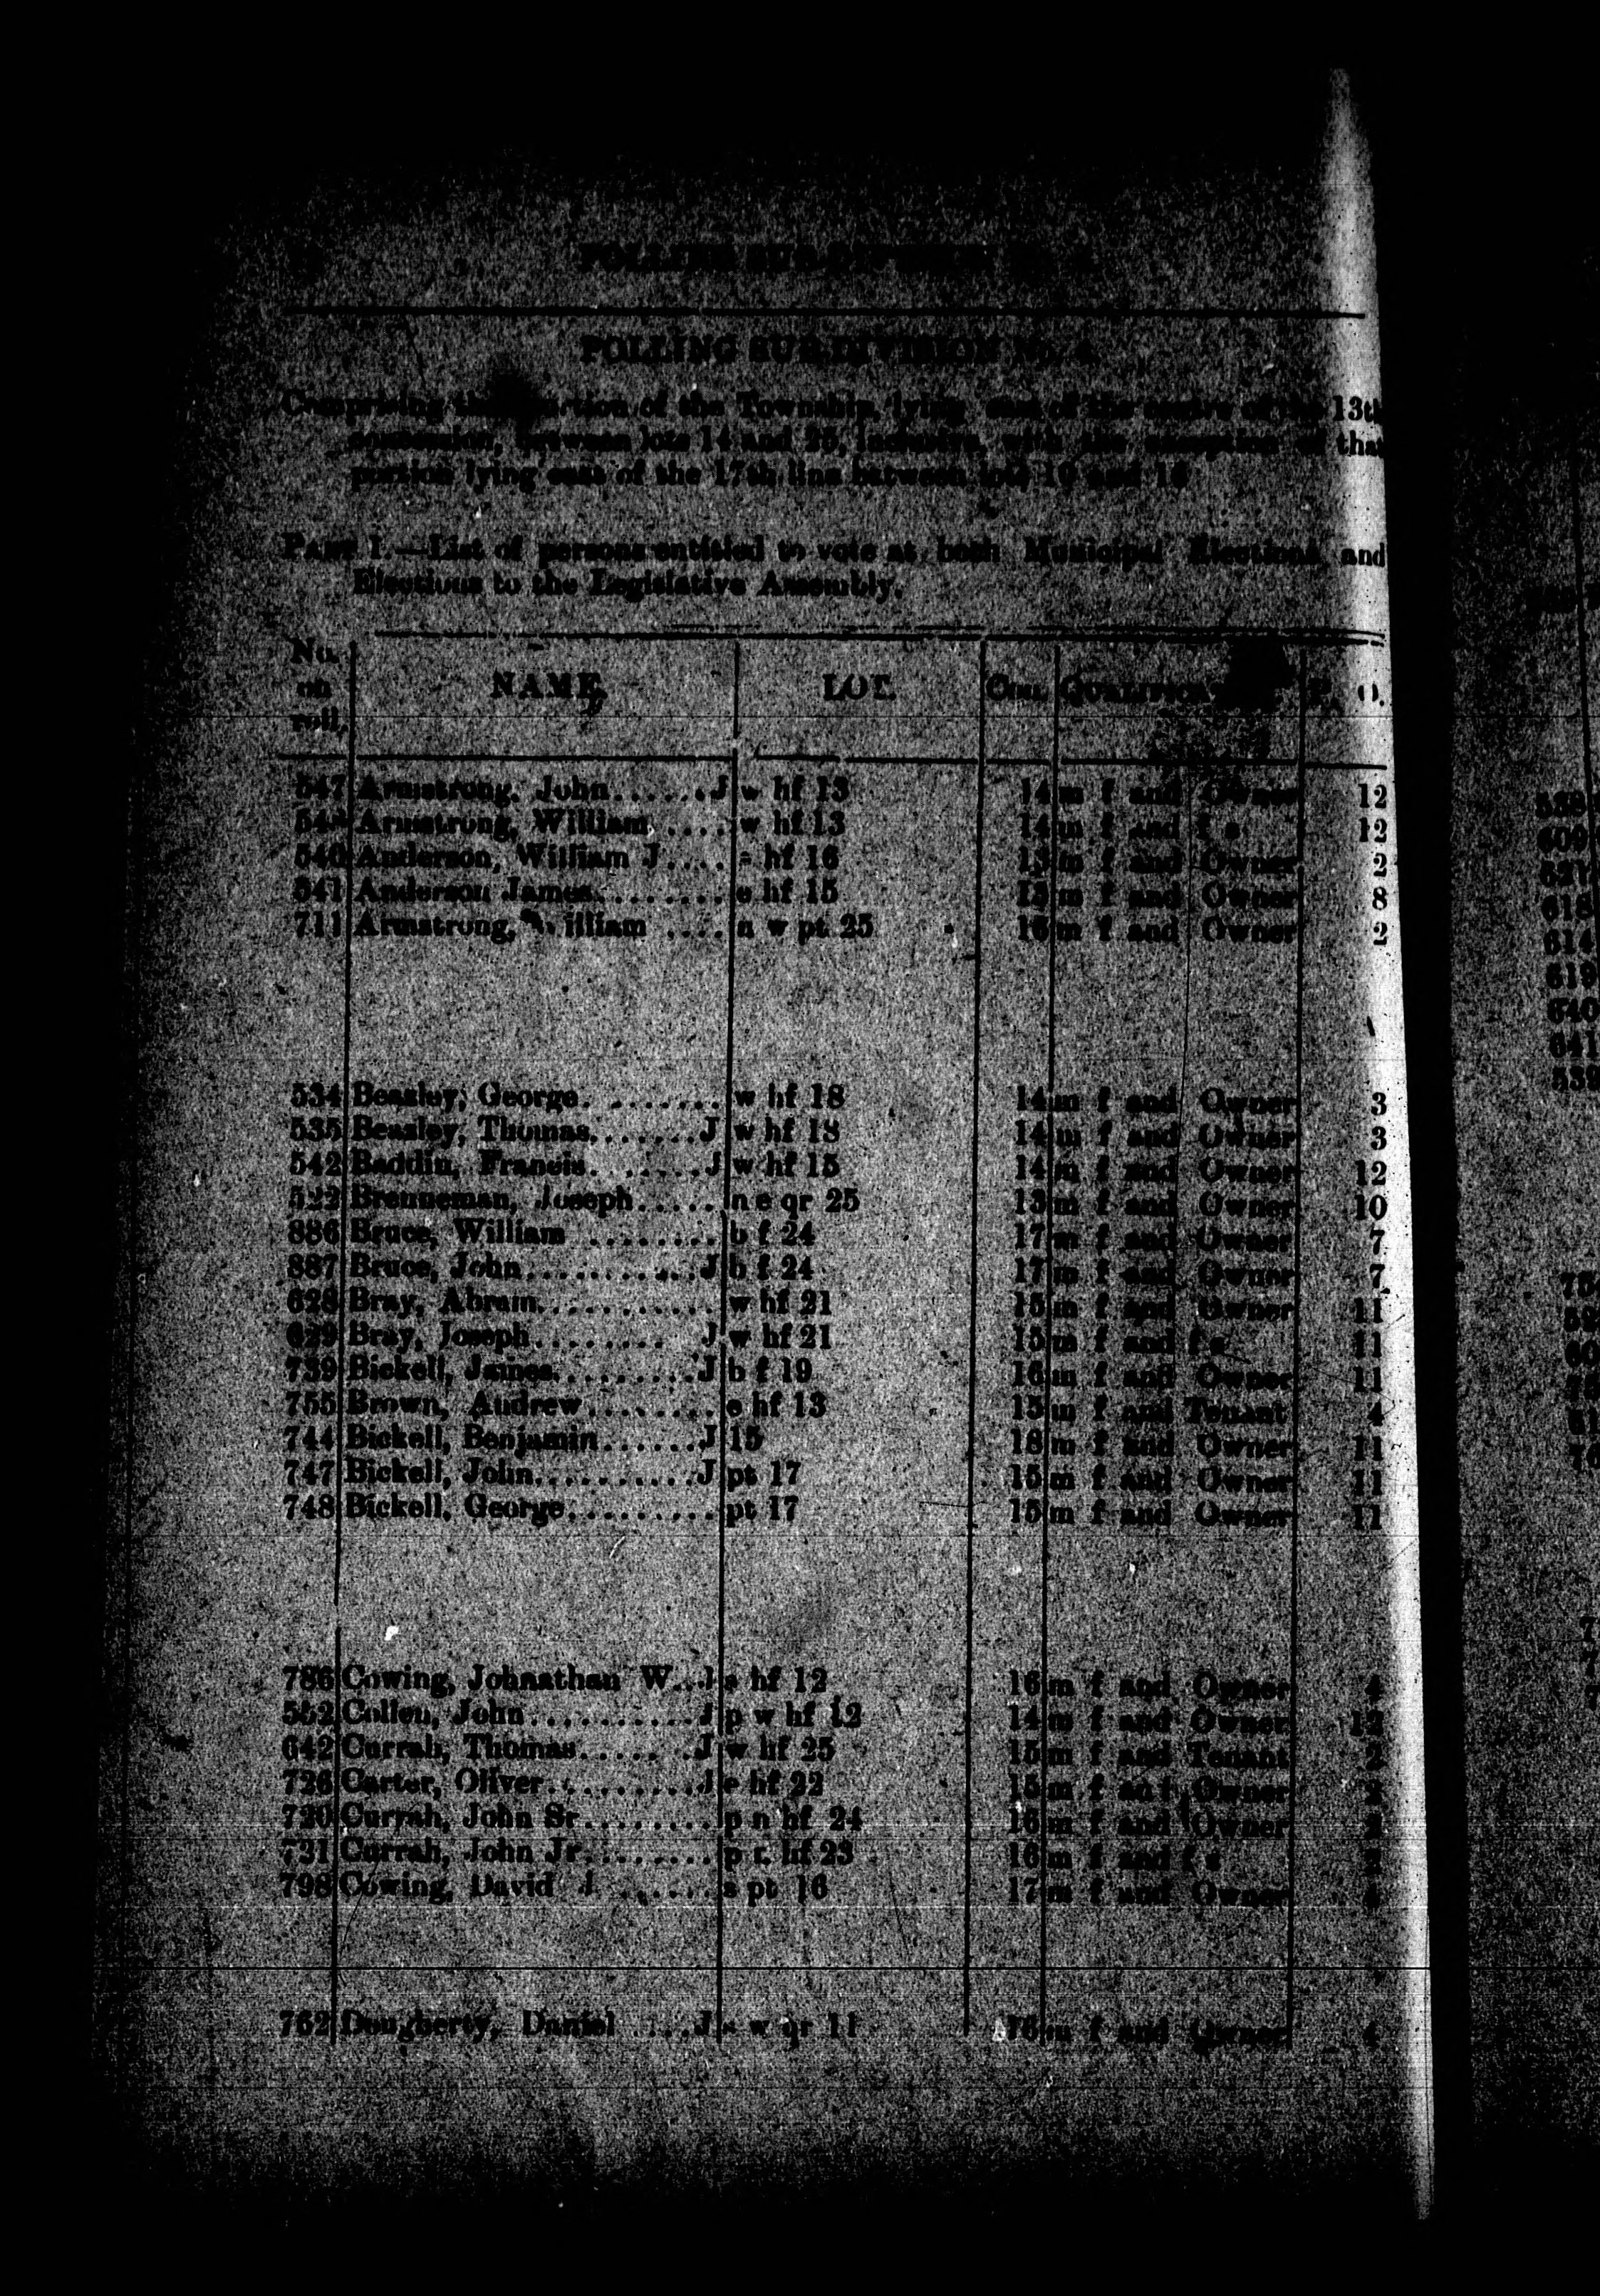 POLLING SUB-DIVISION
POLLING SUB-DIVISION No. 4.
Comprising that portion of the Township lying east of the centre of the 13th
concession, between lots 14 and 25, inclusive, with the exception of that
portion lying east of the 17th line between lots 10 and 16
PART I.—List of persons entitled to vote at both Municipal Elections and
Elections to the Legislative Assembly.
No. on roll. NAME. LOT. Con. P. O.
547 Armstrong, John......J w hf 13 14 m f and Owner 12
Armstrong, William .... w hf 13 14 m f and f s 12
540 Anderson, William J.... hf 16 13 m f and Owner 2
541 Anderson James........ e hf 15 13 m f and Owner 8
711 Armstrong, William .... n w pt 25 16 m f and Owner 2
534 Beazley, George......... w hf 18 14 m f and Owner 3
535 Beazley, Thomas.......J w hf 18 14 m f and Owner 3
542 Baddin, Francis.......J w hf 15 14 m f and Owner 12
522 Brenneman, Joseph..... n e qr 25 13 m f and Owner 10
886 Bruce, William ........ b f 24 17 m f and Owner 7
887 Bruce, John...........J b f 24 17 m f and Owner 7
628 Bray, Abram........... w hf 21 15 m f and Owner 11
629 Bray, Joseph........ J w hf 21 15 m f and f s 11
739 Bickell, James.........J b f 19 16 m f and Owner 11
755 Brown, Andrew........ e hf 13 15 m f and Tenant 4
744 Bickell, Benjamin......J 15 18 m f and Owner 11
747 Bickell, John..........J pt 17 15 m f and Owner 11
748 Bickell, George......... pt 17 15 m f and Owner 11
786 Cowing, Johnathan W..J s hf 12 16 m f and Owner 4
552 Collen, John..........J p w hf 12 14 m f and Owner 12
642 Currah, Thomas.......J w hf 25 15 m f and Tenant 2
726 Carter, Oliver.........J e hf 22 15 m f and Owner 2
720 Currah, John Sr........ p n hf 24 16 m f and Owner 2
731 Currah, John Jr........ p hf 23 16 m f and f s 2
798 Cowing, David J ...... s pt 16 17 m f and Owner 4
762 Dougherty, Daniel ....J s w qr 11 16 m f and Owner 4
609
621
618
614
619
640
641
539